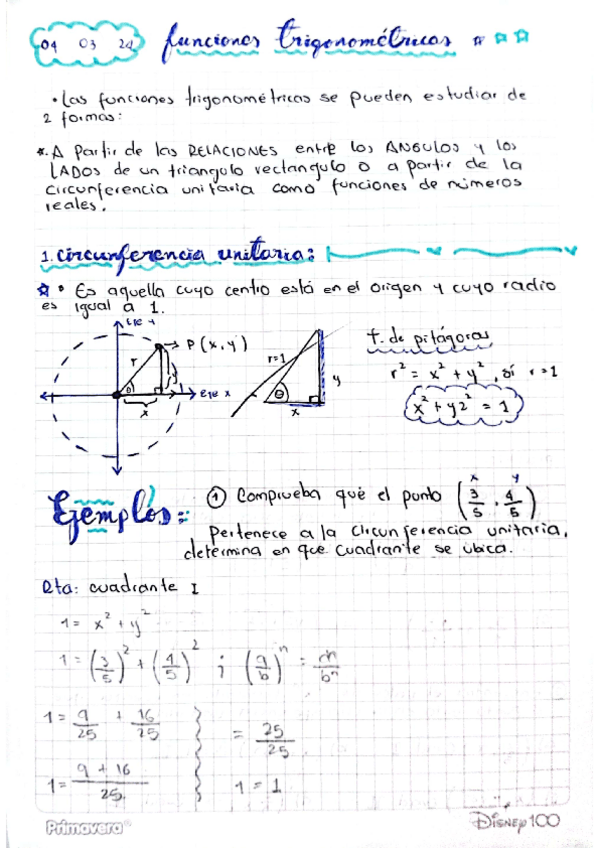 04 03 24 funciones trigonométricas
• Las funciones trigonométricas se pueden estudiar de
2 formas:
*. A partir de las RELACIONES entre los ANGULOS y los
LADOS de un triangulo rectangulo o a partir de la
circunferencia unitaria como funciones de números
reales.
1. circunferencia unitaria:
• Es aquella cuyo centro está en el origen y cuyo radio
es igual a 1.
Eje y
P (x, y)
r
θ
y
Eje x
x
r=1
θ
y
x
t. de pitágoras
r² = x² + y², sí r=1
x² + y2² = 1
Ejemplos:
① Comprueba qué el punto (3/5, 4/5)
x y
Pertenece a la circunferencia unitaria,
determina en que cuadrante se ubica.
Rta: cuadrante I
1 = x² + y²
1 = (3/5)² + (4/5)² ; (a/b)ⁿ = aⁿ/bⁿ
1 = 9/25 + 16/25 = 25/25
1 = 9 + 16/25 1 = 1
Primavera®
Disney100